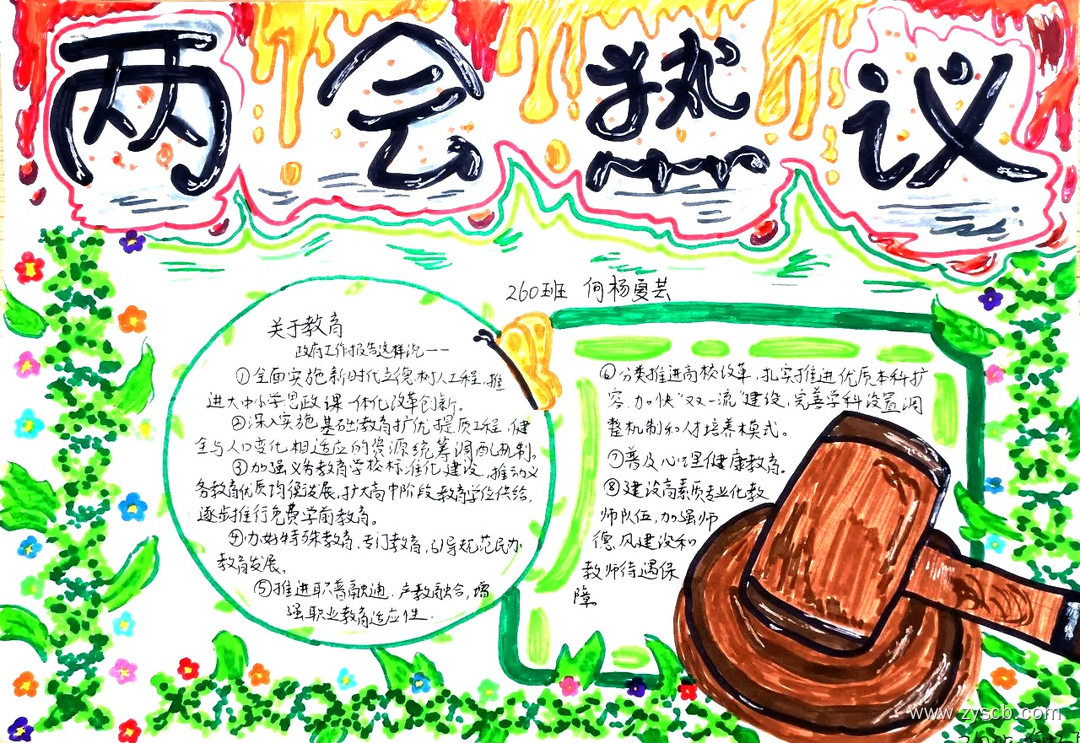 两会热议
260班 何杨夏芸
关于教育
政府工作报告这样说——
①全面实施新时代立德树人工程，推
进大中小学思政课一体化改革创新。
②深入实施基础教育扩优提质工程，健
全与人口变化相适应的资源统筹调配机制。
③加强义务教育学校标准化建设，推动义
务教育优质均衡发展，扩大高中阶段教育学位供给，
逐步推行免费学前教育。
④办好特殊教育、专门教育，引导规范民办
教育发展。
⑤推进职普融通、产教融合，增
强职业教育适应性.
⑥分类推进高校改革，扎实推进优质本科扩
容，加快“双一流”建设，完善学科设置调
整机制和人才培养模式。
⑦普及心理健康教育。
⑧建设高素质专业化教
师队伍，加强师
德师风建设和
教师待遇保
障
www.zyscb.com